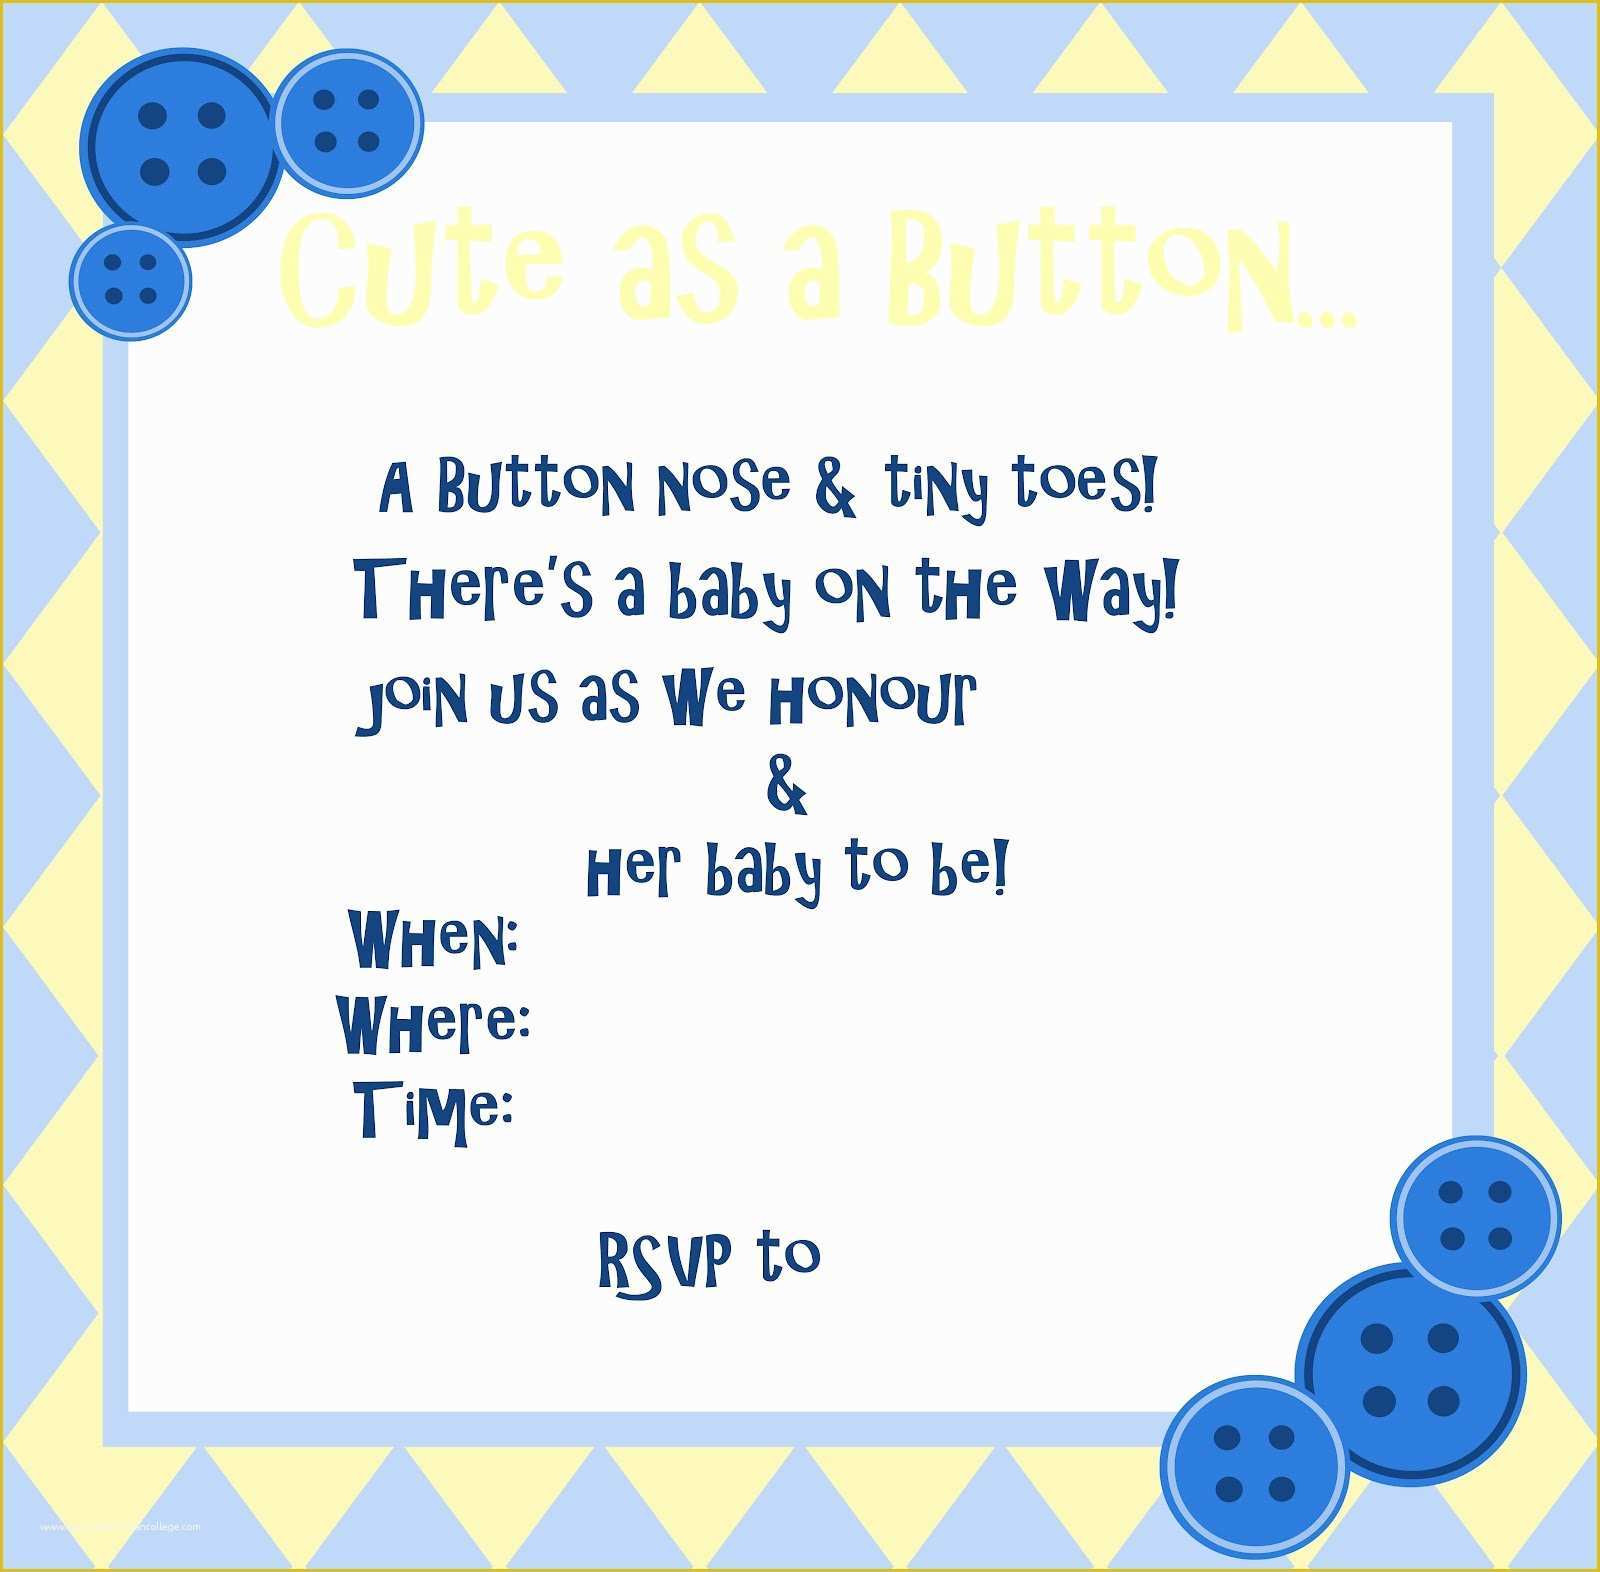 Cute as a Button...
A Button Nose & tiny toes!
There's a baby on the way!
Join us as we honour
&
Her baby to be!
When:
Where:
Time:
RSVP to